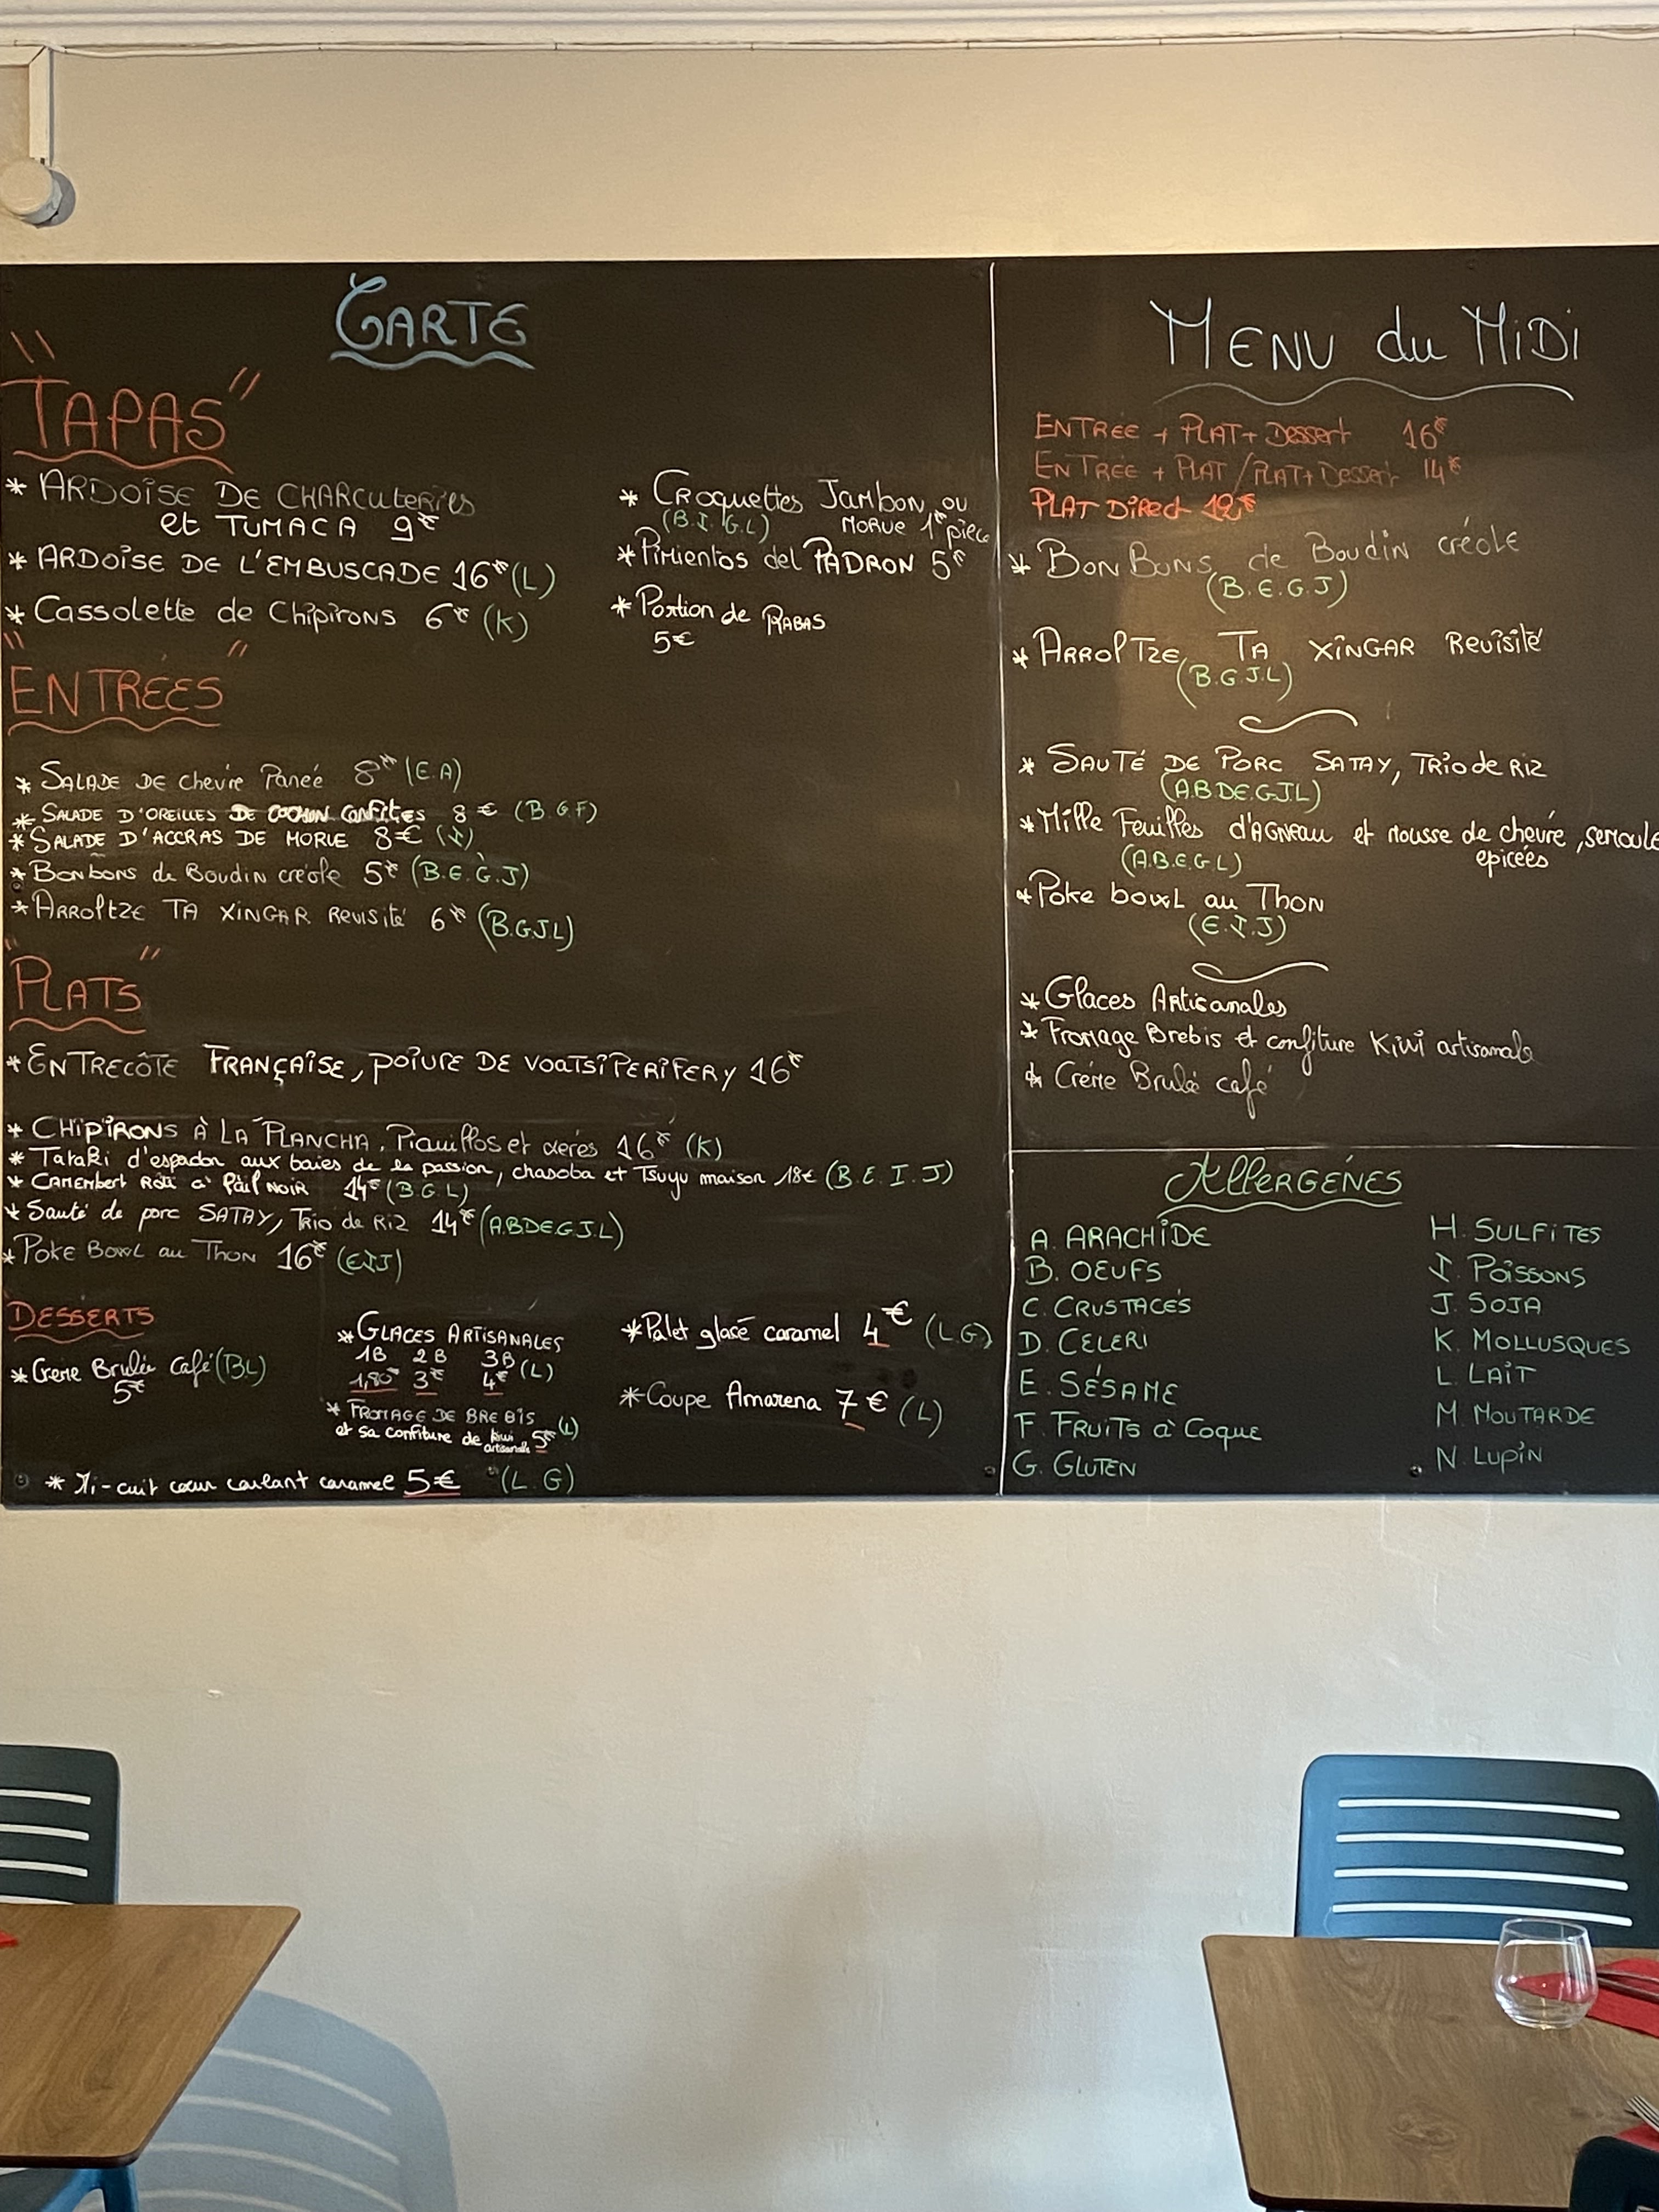 CARTE
"TAPAS"
* ARDOISE DE CHARCUTERIES
et TUMACA 9€
* ARDOISE DE L'EMBUSCADE 16€ (L)
* Cassolette de Chipirons 6€ (K)
* Croquettes Jambon ou
(B.I.G.L) MORUE 1€ pièce
* Pimientos del PADRON 5€
* Portion de RABAS
5€
"ENTRÉES"
* SALADE DE chèvre Panée 8€ (E.A)
* SALADE D'OREILLES DE COCHON CONFITES 8 € (B.G.F)
* SALADE D'ACCRAS DE MORUE 8€ (I)
* Bonbons de Boudin créole 5€ (B.E.G.J)
* ARROLTZE TA XINGAR Revisité 6€ (B.G.J.L)
"PLATS"
* ENTRECÔTE FRANÇAISE, POIVRE DE VOATSIPERIFERY 16€
* CHIPIRONS À LA PLANCHA, Piquillos et 16€ (K)
* Tataki d'espadon aux baies de la passion, chasoba et Tsuyu maison 18€ (B.E.I.J)
* CAMEMBERT Rôti à l'ail NOIR 14€ (B.G.L)
* Sauté de porc SATAY, Trio de Riz 14€ (A.B.D.E.G.J.L)
* POKE BOWL au THON 16€ (E.I.J)
DESSERTS
* Creme Brulée Café (B.L)
5€
* GLACES ARTISANALES
1B 2B 3B (L)
1,80€ 3€ 4€
* FROMAGE DE BREBIS
et sa confiture de kiwi artisanale 5€ (L)
* Palet glacé caramel 4€ (L.G)
* Coupe Amarena 7€ (L)
* Mi-cuit cœur coulant caramel 5€ (L.G)
MENU du MIDI
ENTRÉE + PLAT + Dessert 16€
ENTRÉE + PLAT / PLAT + Dessert 14€
PLAT DIRECT 12€
* BONBONS de Boudin créole
(B.E.G.J)
* ARROLTZE TA XINGAR Revisité
(B.G.J.L)
* SAUTÉ DE PORC SATAY, TRIO de RIZ
(A.B.D.E.G.J.L)
* Mille Feuilles d'AGNEAU et mousse de chèvre, semoule
(A.B.E.G.L) épicées
* Poke bowl au Thon
(E.I.J)
* Glaces Artisanales
* Fromage Brebis et confiture Kiwi artisanale
* Crème Brulé café
ALLERGÈNES
A. ARACHIDE
B. OEUFS
C. CRUSTACÉS
D. CELERI
E. SÉSAME
F. FRUITS à Coque
G. GLUTEN
H. SULFITES
I. POISSONS
J. SOJA
K. MOLLUSQUES
L. LAIT
M. MOUTARDE
N. LUPIN